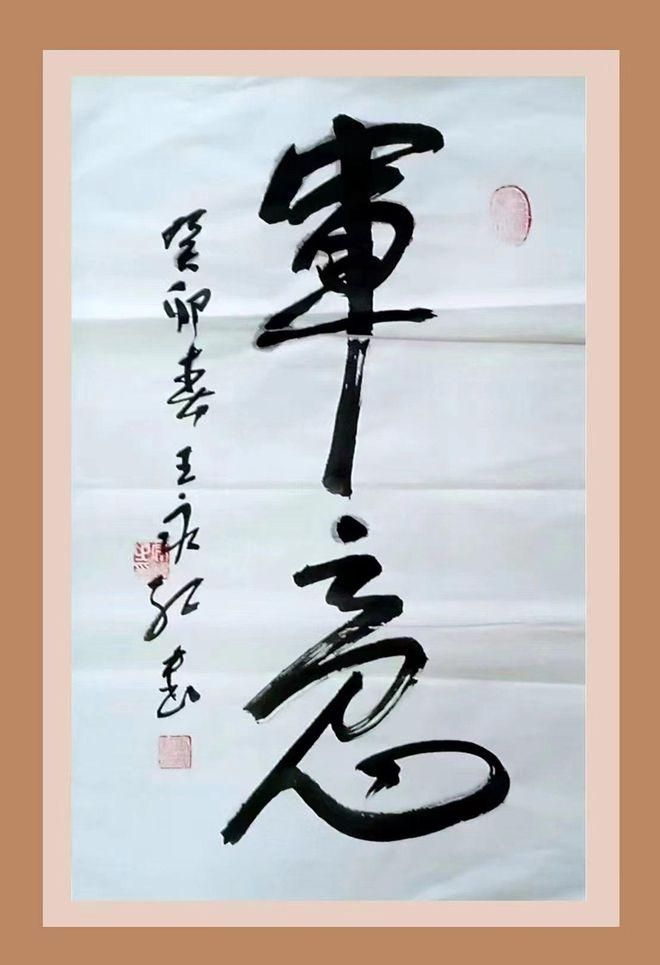 軍魂
癸卯春王永红書